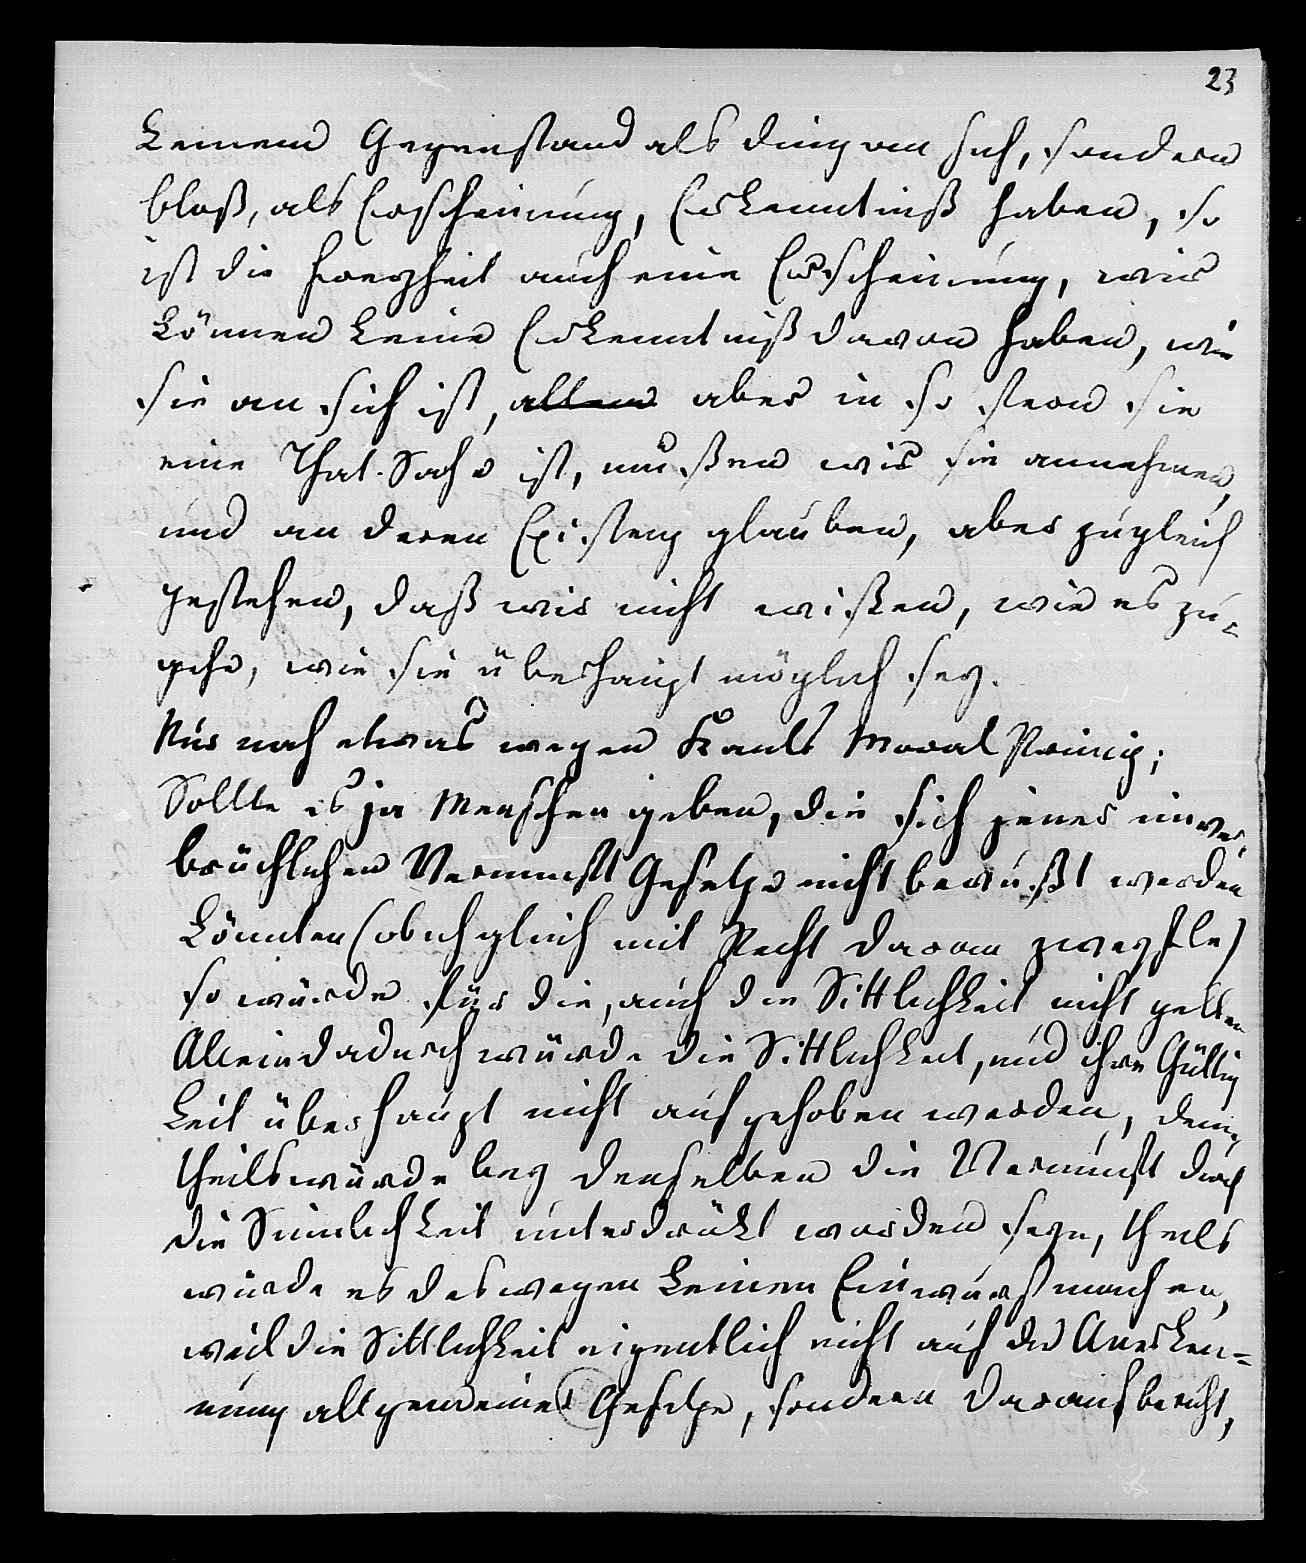 23
keinem Gegenstand als Ding an sich, sondern
bloß, als Erscheinung, Erkenntniß haben, so
ist die Freyheit auch eine Erscheinung, wir
können keine Erkenntniß davon haben, wie
sie an sich ist, allein aber in so fern sie
eine That-Sache ist, müßen wir sie annehmen,
und an deren Existenz glauben, aber zugleich
gestehen, daß wir nicht wißen, wie es zu-
gehe, wie sie überhaupt möglich sey.
Nur noch etwas wegen Kants Moral Princip;
Sollte es ja Menschen geben, die sich jenes unver-
brüchlichen Vernunft Gesetzes nicht bewußt werden
könnten (ob ich gleich mit Recht daran zweyfle)
so würde für die, auch die Sittlichkeit nicht gelten
Allein dadurch würde die Sittlichkeit, und ihre Gültig
keit überhaupt nicht aufgehoben werden, denn
theils würde bey denselben die Vernunft durch
die Sinnlichkeit unterdrükt worden seyn, theils
würde es deswegen keinen Einwurf machen,
weil die Sittlichkeit eigentlich nicht auf der Anerken-
nung allgemeiner Gesetze, sondern darauf beruht,